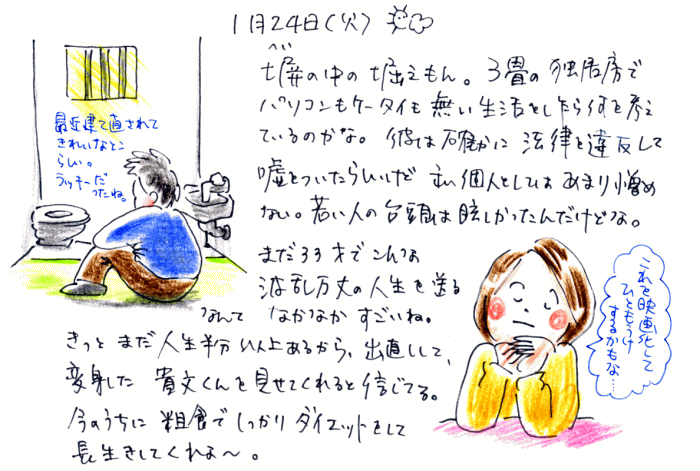 1月24日(火)
べい
塀の中の堀えもん。3畳の独居房で
パソコンもケータイも無い生活をしたら何を考え
ているのかな。彼は確かに法律を違反して
嘘をついたらしいけど 私個人としてはあまり憎め
ない。若い人の台頭は眩しかったんだけどな。
まだ33才でこんな
波乱万丈の人生を送る
なんて なかなかすごいね。
きっとまだ人生半分以上あるから、出直しして、
変身した 貴文くんを見せてくれると信じてる。
今のうちに 粗食でしっかりダイエットをして
長生きしてくれよ〜。
最近建て直されて
きれいなとこ
らしい。
ラッキーだ
ったね。
これを映画化して
ひともうけ
するかもな…